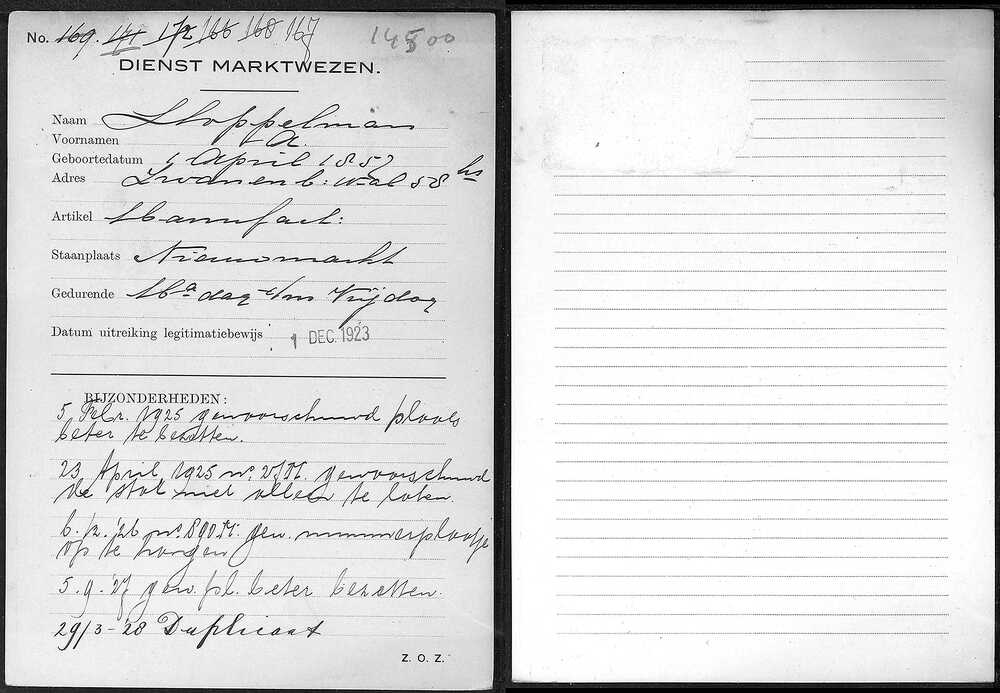 No. 169. 171 172 166 168 167 14500
DIENST MARKTWEZEN.
Naam Stoppelman
Voornamen A.
Geboortedatum 5 April 1852
Adres Zwanenb: wal 58 hs
Artikel Manufact:
Staanplaats Nieuwmarkt
Gedurende Ma dag t/m Vrijdag
Datum uitreiking legitimatiebewijs 1 DEC. 1923
BIJZONDERHEDEN:
5 Febr. 1925 gewaarschuwd plaats
beter te bezetten.
23 April 1925 no. 27 M. gewaarschuwd
de stal niet alleen te laten.
6.12.'26 no. 890 M. gew. nummerplaatje
op te hangen
5.9.'27 gew. pl. beter bezetten.
29/3-'28 Duplicaat
Z. O. Z.